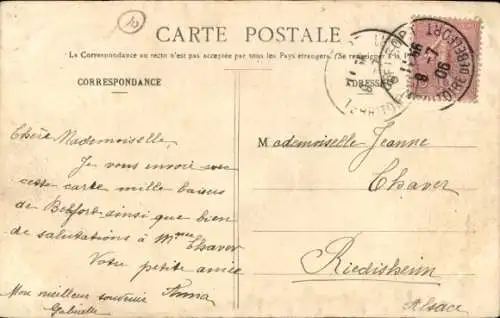 CARTE POSTALE
La Correspondance au recto n'est pas acceptée par tous les Pays étrangers. (Se renseigner
CORRESPONDANCE
ADRESSE
BELFORT
8 -7
06
TERRITOIRE DE BELFORT
Chère Mademoiselle,
Je vous envoie avec
cette carte mille baisers
de Belfort ainsi que bien
de salutations à Mme Chaver
Votre petite amie
Anna
Mon meilleur souvenir
Gabrielle
Mademoiselle Jeanne
Chaver
Riedisheim
Alsace